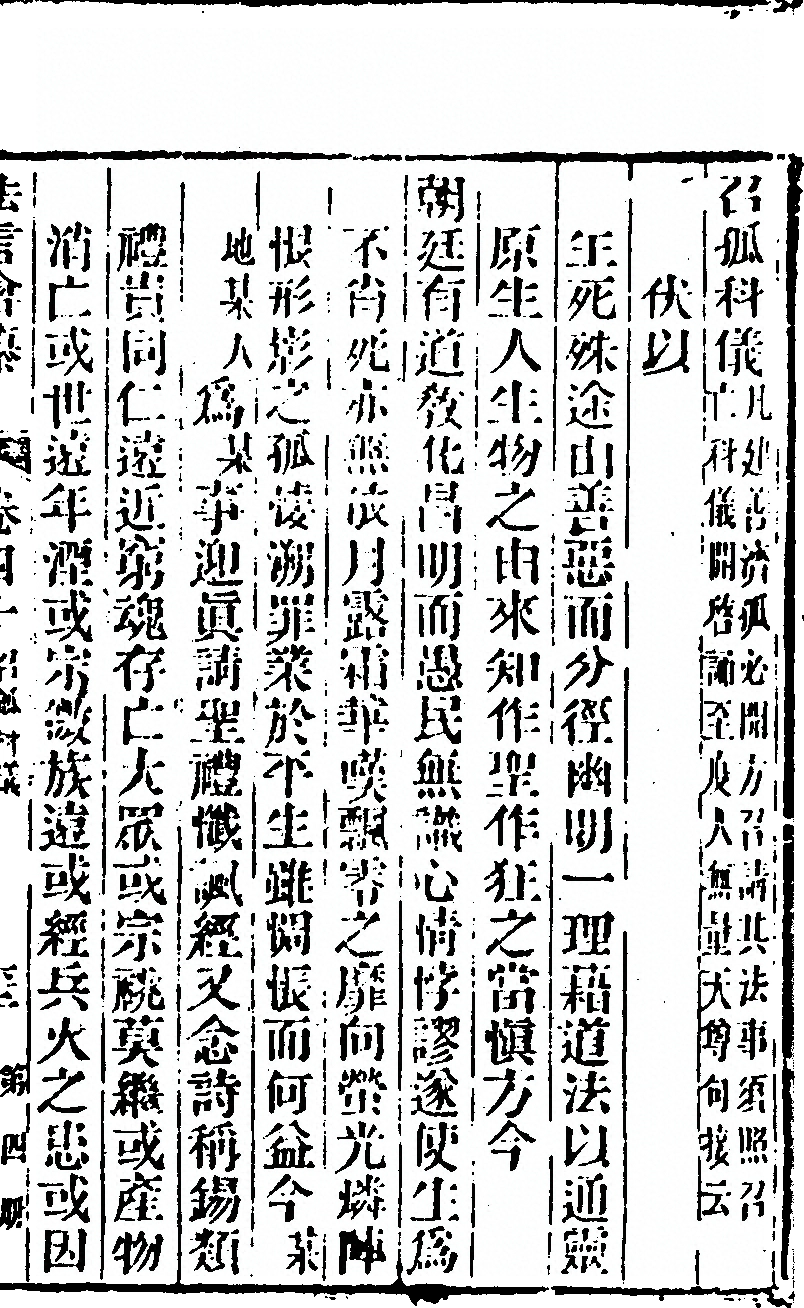 召孤科儀凡建善濟孤必開方召請其法事須照召亡科儀開啓誦至度人無量天尊句接云
伏以
生死殊途由善惡而分徑幽明一理藉道法以通靈
原生人生物之由來知作聖作狂之當愼方今
朝廷有道敎化昌明而愚民無識心情悖謬遂使生爲
不肖死亦無依月露霜華嘆飄零之靡向螢光燐陣
恨形影之孤悽溯罪業於平生雖惆悵而何益今某
地某人爲某事迎眞請聖禮懺諷經又念詩稱錫類
禮貴同仁遠近窮魂存亡大眾或宗祧莫繼或產物
消亡或世遠年湮或宗微族遠或經兵火之患或因
法言會纂 卷四十 召孤科儀 三 第四册